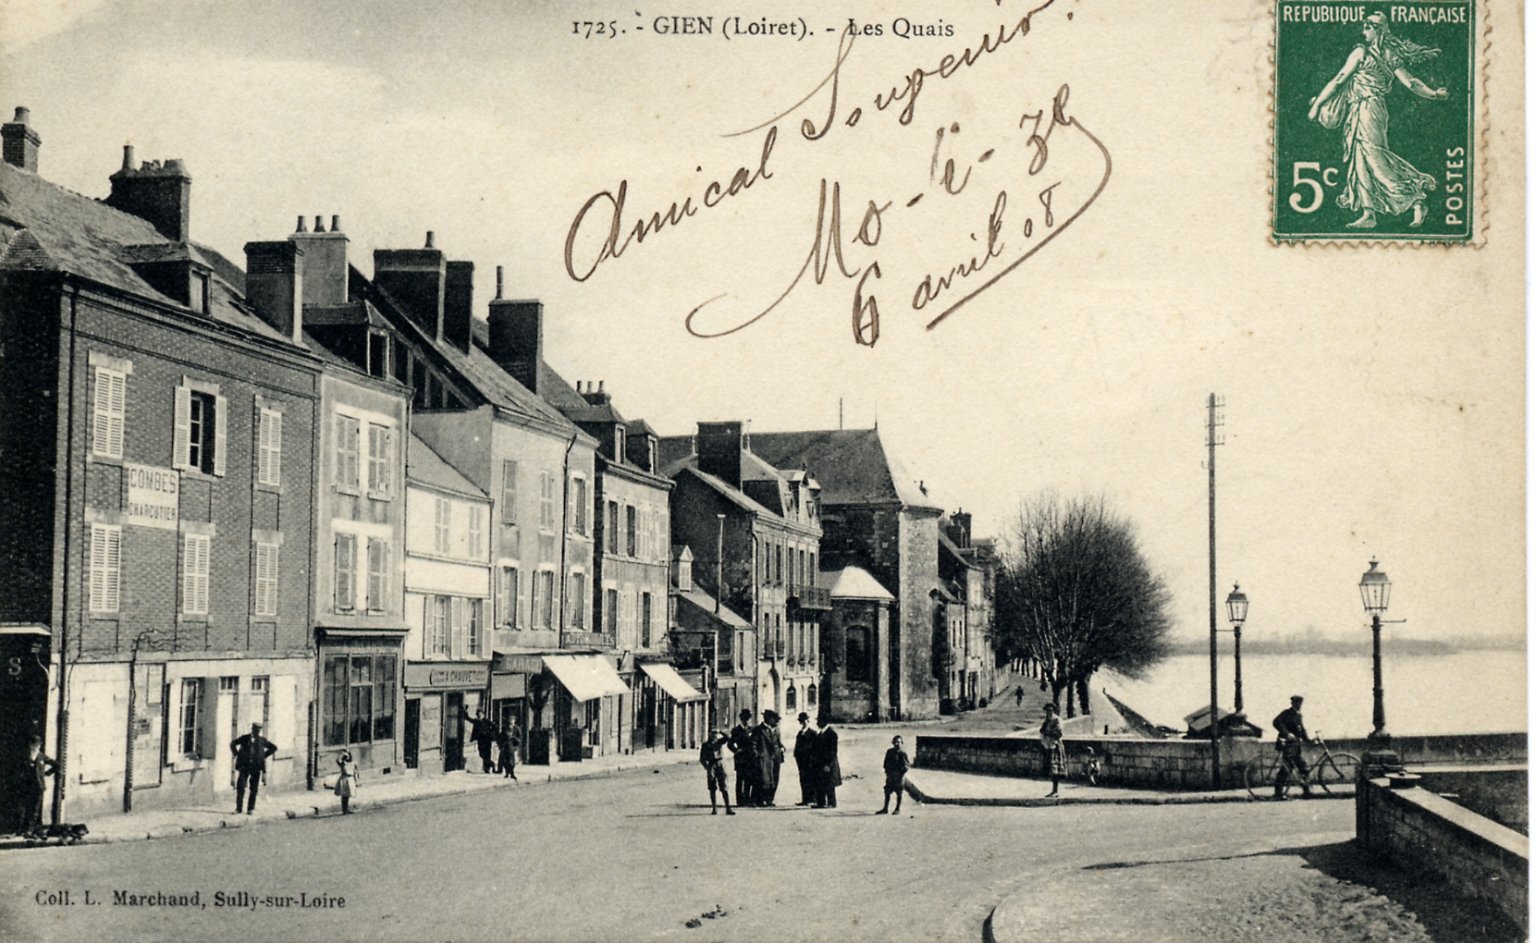 1725. - GIEN (Loiret). - Les Quais
REPUBLIQUE FRANÇAISE
5c
POSTES
Amical Souvenir.
6 avril 08
COMBES
CHARCUTIER
AUTOMOBILES
GARAGE
CHAUVET
S
Coll. L. Marchand, Sully-sur-Loire